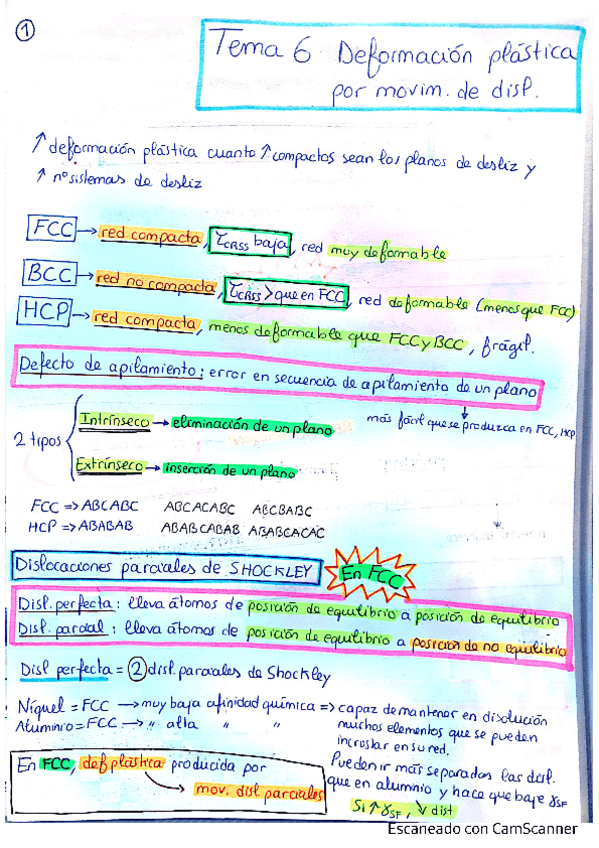 1
Tema 6 Deformación plástica
por movim. de disl.
↑ deformación plástica cuanto ↑ compactos sean los planos de desliz y
↑ nº sistemas de desliz
FCC → red compacta, τCRSS baja, red muy deformable
BCC → red no compacta, τCRSS > que en FCC, red deformable (menos que FCC)
HCP → red compacta, menos deformable que FCC y BCC, frágil.
Defecto de apilamiento: error en secuencia de apilamiento de un plano
más fácil que se produzca en FCC, HCP
2 tipos
Intrínseco → eliminación de un plano
Extrínseco → inserción de un plano
FCC => ABCABC ABCACABC ABCBABC
HCP => ABABAB ABABCABAB ABABCACAC
Dislocaciones parciales de SHOCKLEY
En FCC
Disl. perfecta: lleva átomos de posición de equilibrio a posición de equilibrio
Disl. parcial: lleva átomos de posición de equilibrio a posición de no equilibrio
Disl perfecta = 2 disl. parciales de Shockley
Níquel = FCC → muy baja afinidad química => capaz de mantener en disolución
Aluminio = FCC → " alta " "
muchos elementos que se pueden
incrostar en su red.
Pueden ir más separadas las disl.
que en aluminio y hace que baje γSF
Si ↑ γSF, ↓ dist
En FCC, def plástica producida por
mov. disl. parciales
Escaneado con CamScanner